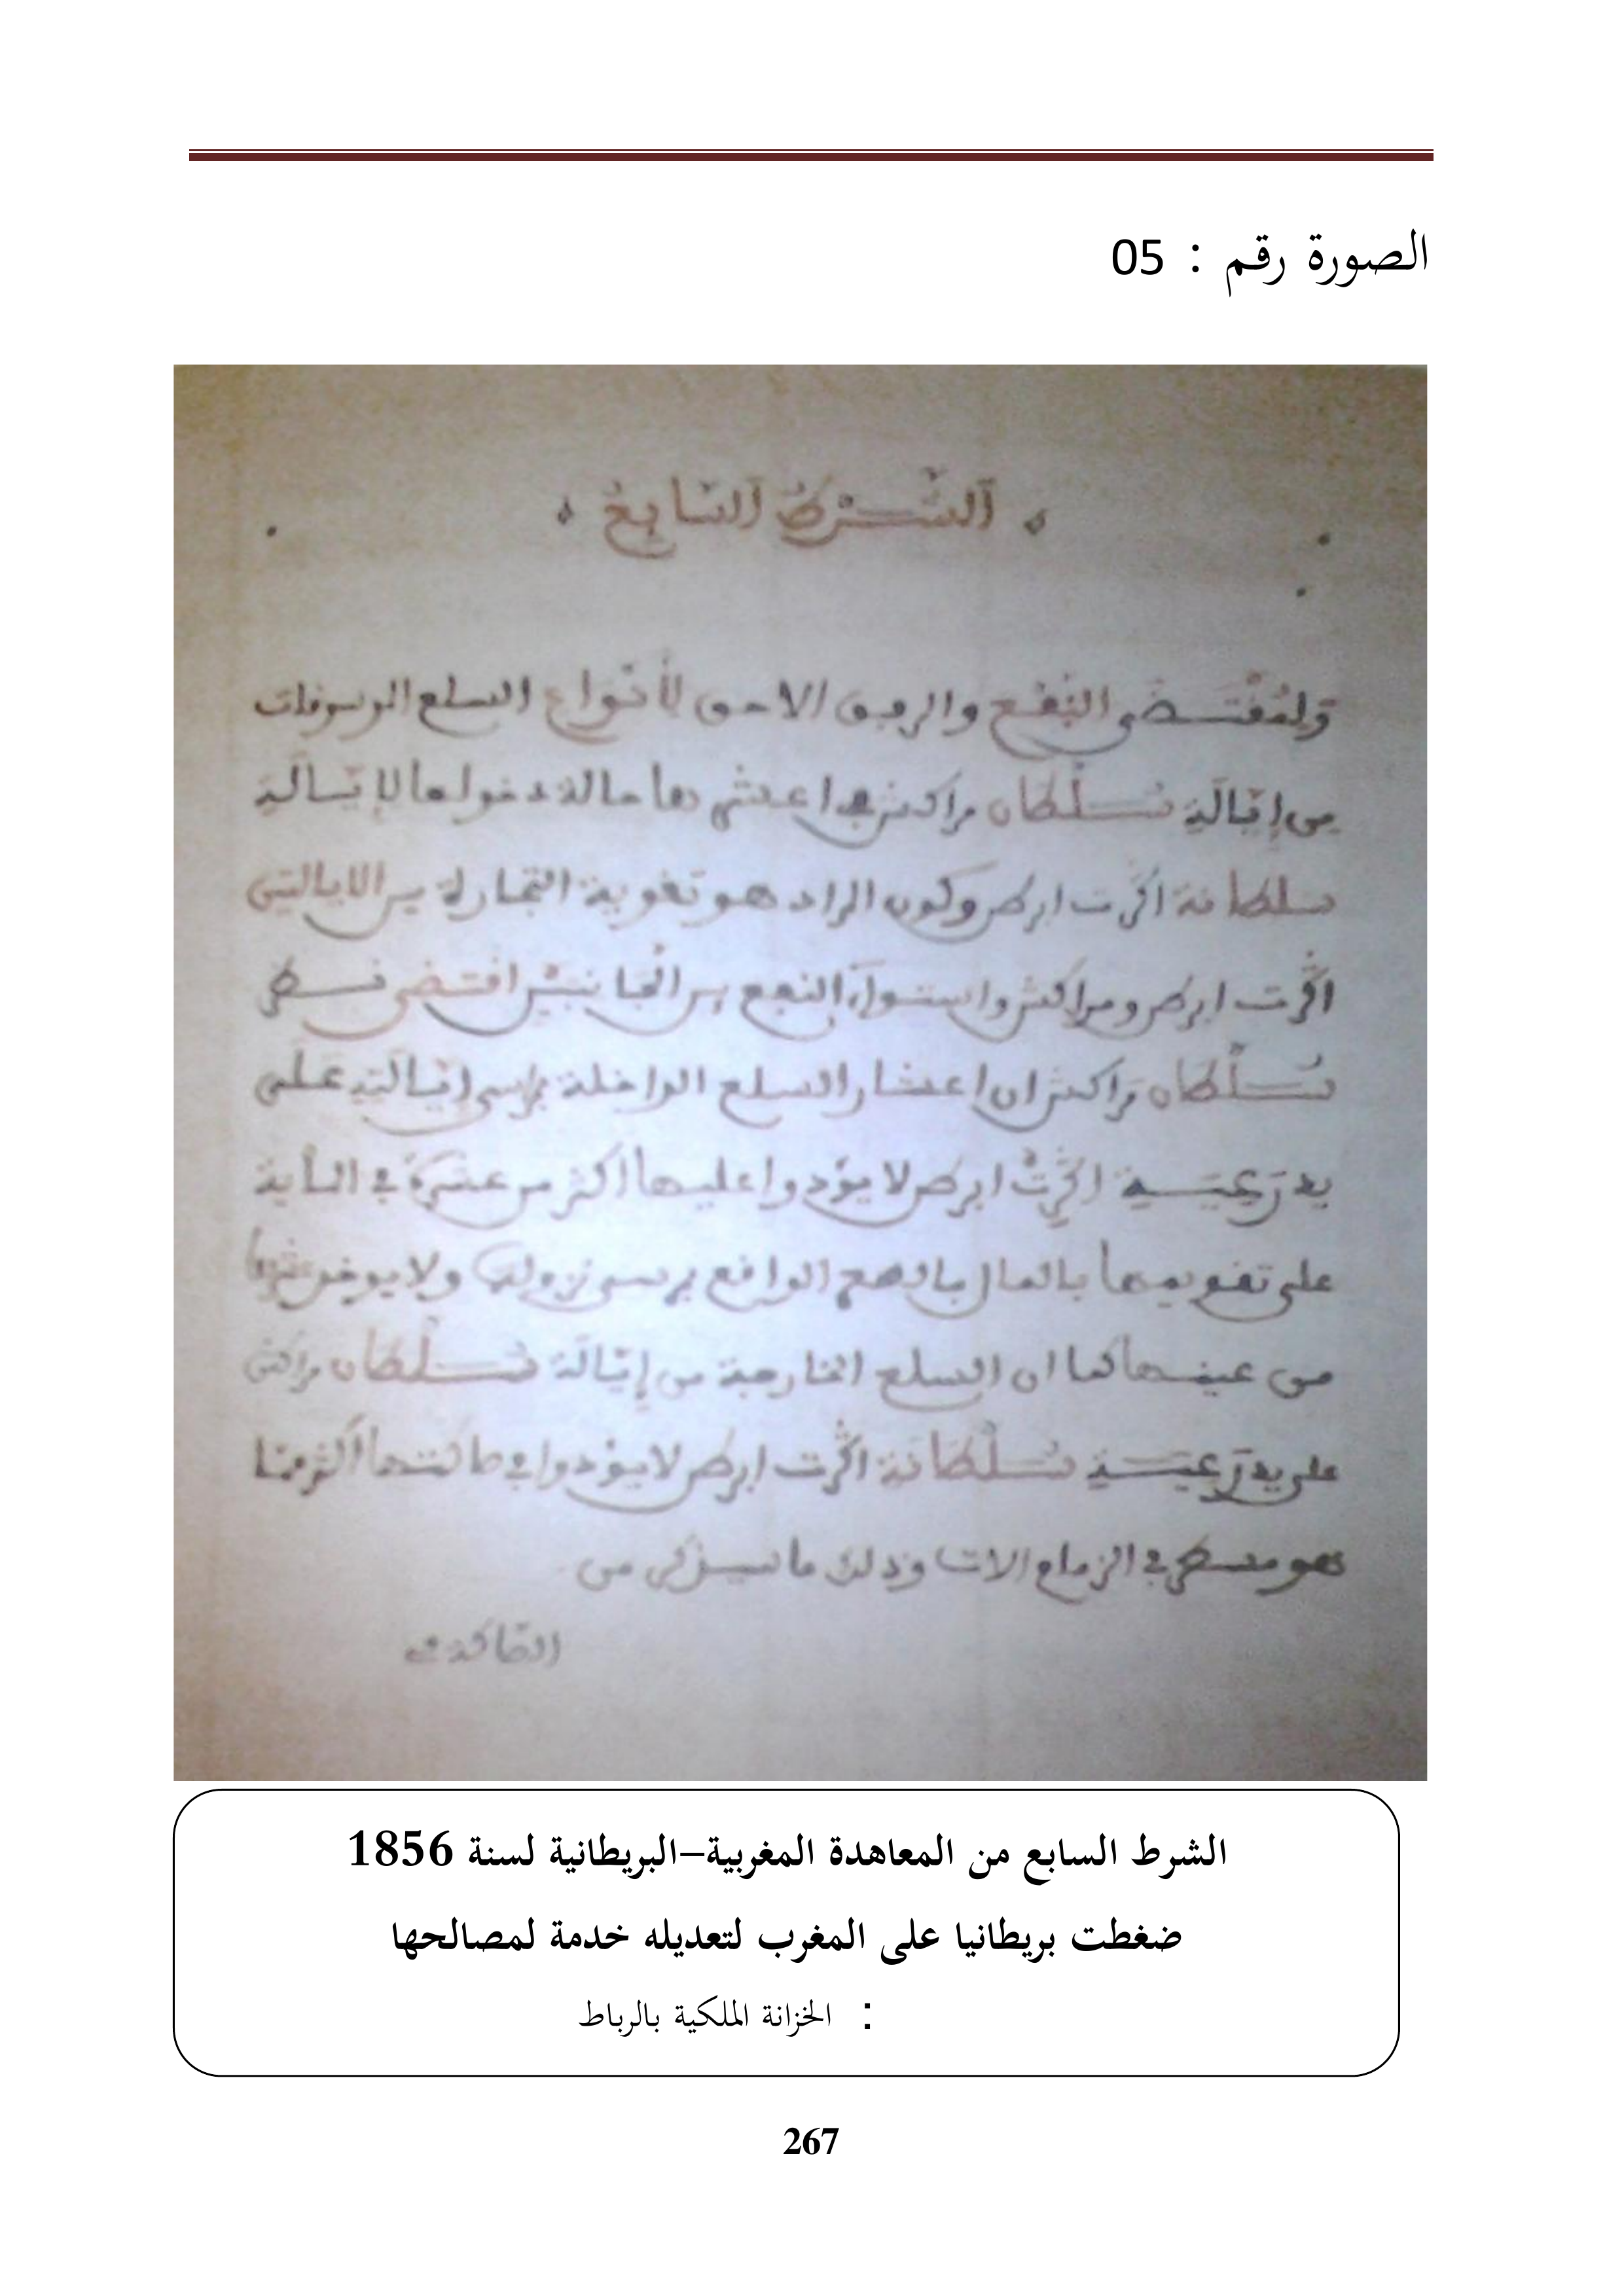 الصورة رقم : 05
الشرط السابع
ولمقتضى النفع والرفق الاحق لأنواع السلع الموسوقات
من إيالة سلطان مراكش في اعشارها حالة دخولها لإيالة
سلطانة اكرت ابرطن وكون المراد هو تقوية التجارة بين الايالتين
اكرت ابرطن ومراكش واستواء النفع بين الجانبين اقتضى نظر
سلطان مراكش ان اعشار السلع الداخلة بمراسي إيالته على
يد رعية اكرت ابرطن لا يؤدوا عليها أكثر من عشرة في الماية
على تقويمها بالمال بالصح الواقع بمرسى نزولها ولا يوخذ
من عينها كما ان السلع الخارجة من إيالة سلطان مراكش
على يد رعية سلطانة اكرت ابرطن لا يؤدوا في صاكتها أكثر مما
هو مسطر في الزمام الات وذلك ما
الشرط السابع من المعاهدة المغربية–البريطانية لسنة 1856
ضغطت بريطانيا على المغرب لتعديله خدمة لمصالحها
: الخزانة الملكية بالرباط
267